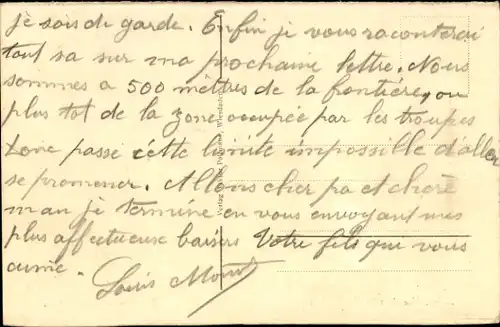 je sois de garde. Enfin je vous raconterai
tout sa sur ma prochaine lettre. Nous
sommes a 500 mètres de la frontière, ou
plus tot de la zone occupée par les troupes
donc passé cette limite impossille d'aller
se promener. Allons cher pa et chère
man je termine en vous envoyant mes
plus affectueuse baisers Votre fils qui vous
aime. Louis
Verlag Wiesbaden